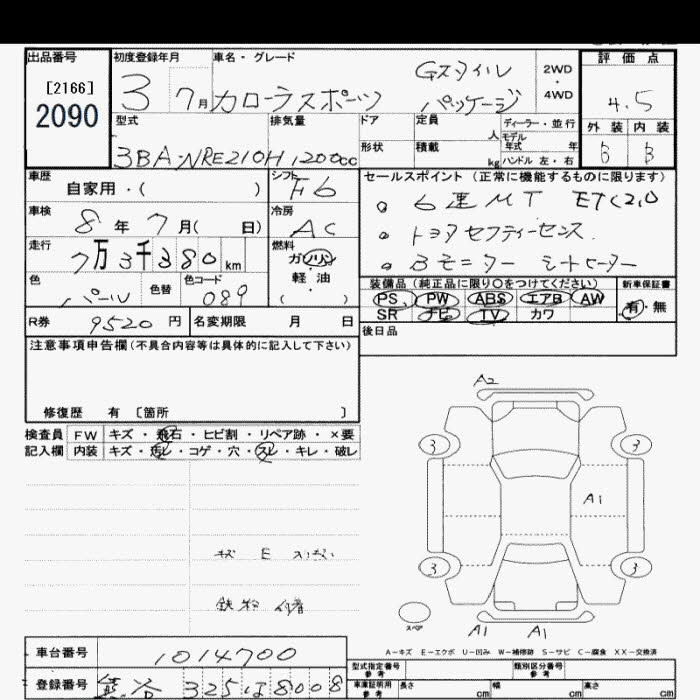 出品番号 初度登録年月 車名・グレード 評価点
[2166] 3 7月 カローラスポーツ Gスタイル パッケージ 2WD ・ 4WD 4.5
2090
型式 排気量 ドア 定員 人 ディーラー・並行 外装 内装
3BA-NRE210H 1200cc 形状 積載 kg モデル年式 年 ハンドル 左・右 B B
車歴 シフト セールスポイント (正常に機能するものに限ります)
自家用・( ) F6 。6速MT ETC2.0
車検 冷房
8年 7月( 日) AC 。トヨタセフティーセンス.
走行 燃料
7万3千380km ガソリン 。Bモニター シートヒーター
軽・油
( )
色 色替 色コード 装備品 (純正品に限り○をつけてください) 新車保証書
パール 089 PS PW ABS エアB AW 有・無
R券 9520円 名変期限 月 日 SR ナビ TV カワ
注意事項申告欄 (不具合内容等は具体的に記入して下さい) 後日品
修復歴 有 〔箇所 〕
検査員 FW キズ・飛石・ヒビ割・リペア跡・×要
記入欄 内装 キズ・汚レ・コゲ・穴・スレ・キレ・破レ
A2
3 3
A1
3 3
スペア
A1 A1
A-キズ E-エクボ U-凹み W-補修跡 S-サビ C-腐食 XX-交換済
車台番号 1014700
型式指定番号 参考 類別区分番号 参考
登録番号 325 は 8008
車庫証明用 参考 長さ cm 幅 cm 高さ cm